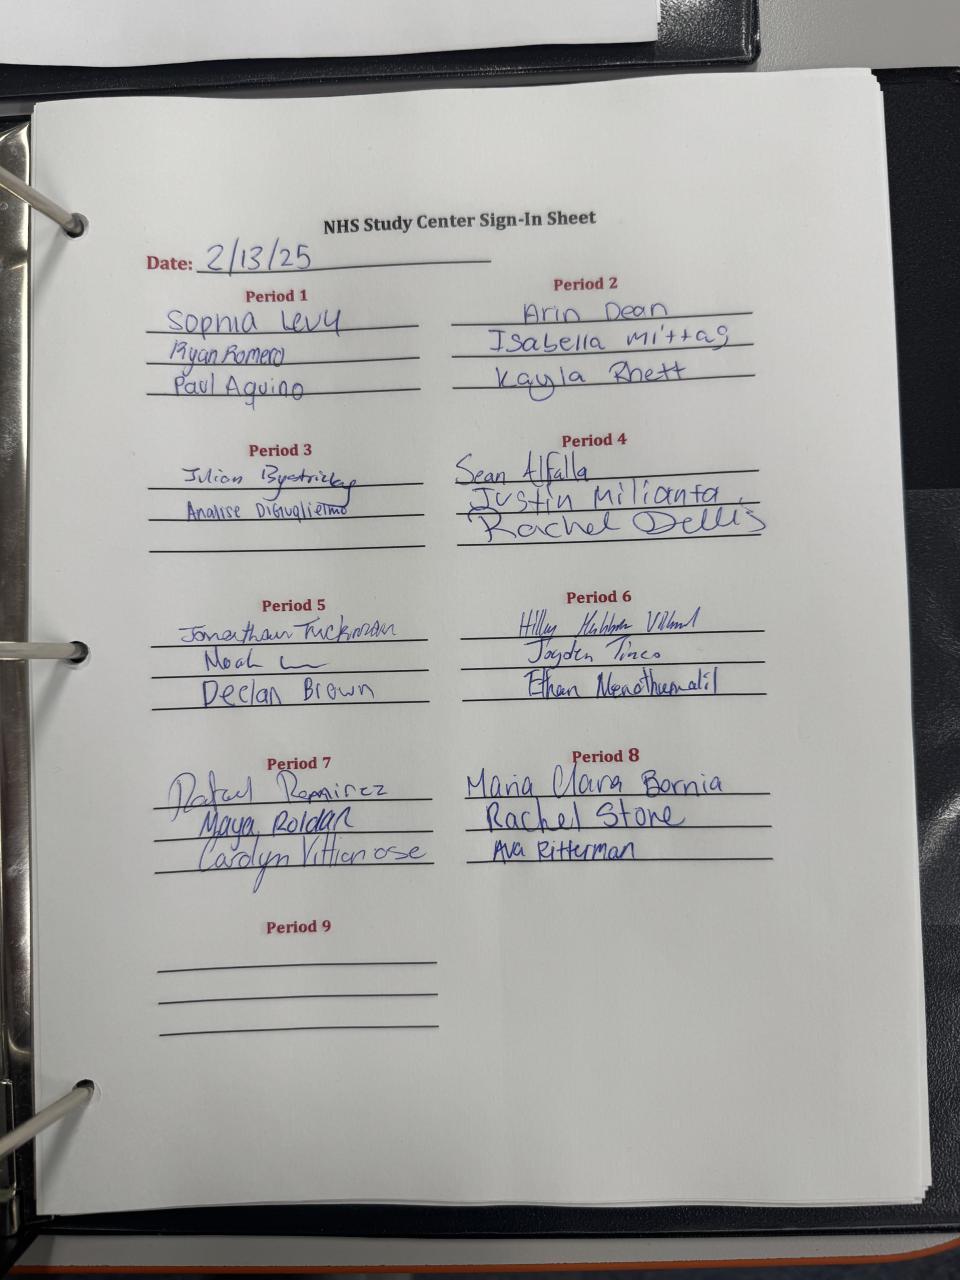 NHS Study Center Sign-In Sheet
Date: 2/13/25
Period 1
Sophia Levy
Ryan Romero
Paul Aquino
Period 2
Arin Dean
Isabella Mittag
Kayla Rhett
Period 3
Julian Bystricky
Analise DiGuglielmo
Period 4
Sean Alfalla
Justin Milianta
Rachel Dellis
Period 5
Jonathan Tuckman
Noah
Declan Brown
Period 6
Jayden Tineo
Ethan
Period 7
Rafael Ramirez
Maya Roldan
Carolyn
Period 8
Maria Clara Bornia
Rachel Stone
Ava Ritterman
Period 9